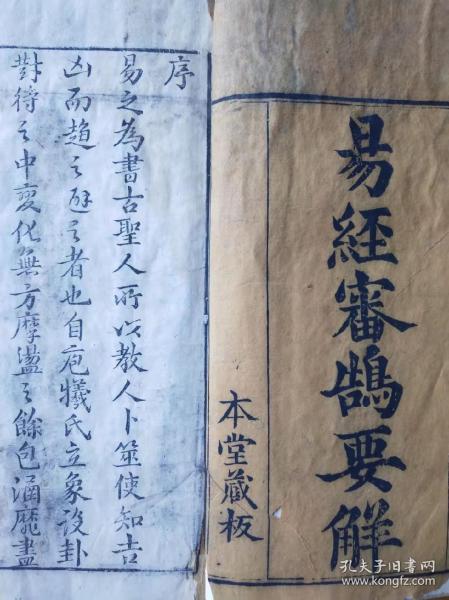 易經審鵠要解
本堂藏板
序
易之為書古聖人所以教人卜筮使知吉
凶而趨之避之者也自庖犧氏立象設卦
對待之中變化無方摩盪之餘包涵靡盡
孔夫子旧书网
www.kongfz.com